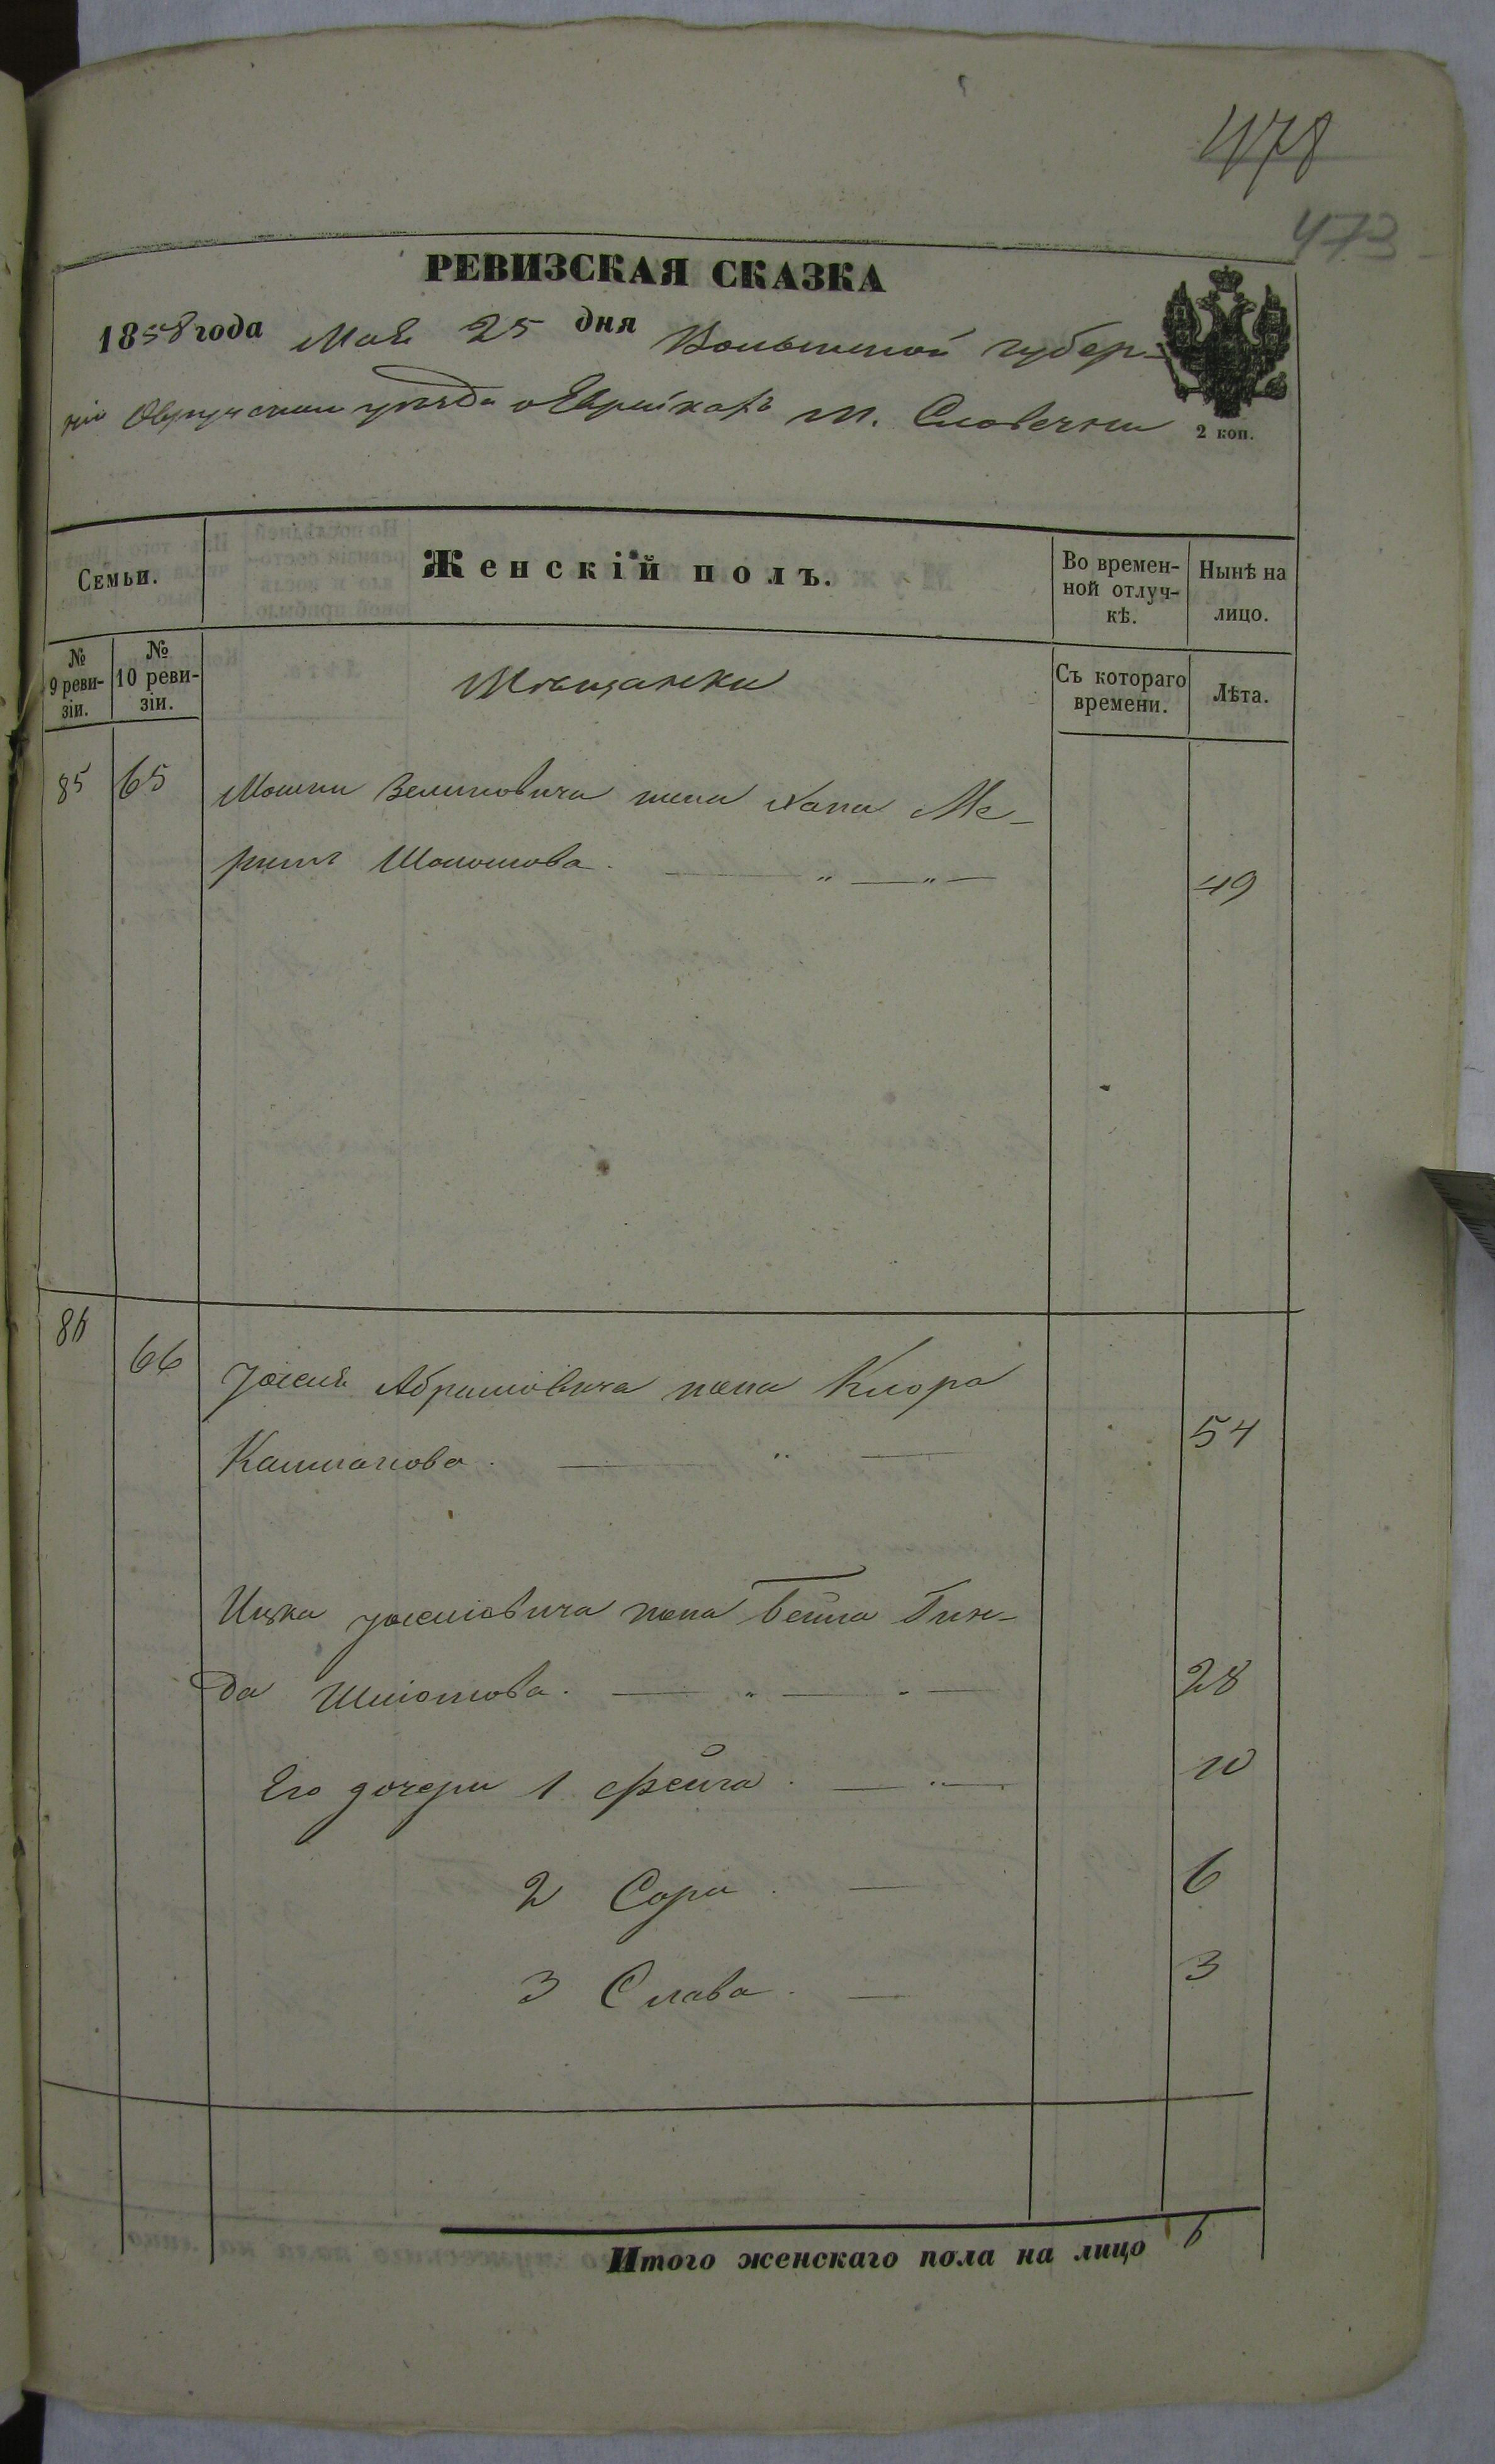 478
473
РЕВИЗСКАЯ СКАЗКА
1858 года Мая 25 дня Волынской губер-
ніи Овручскаго уѣзда о Еврейкахъ м. Словечни
2 коп.
Семьи.
Женскій полъ.
Во времен-
ной отлуч-
кѣ.
Нынѣ на
лицо.
№
9 реви-
зіи.
№
10 реви-
зіи.
Мѣщанки
Съ котораго
времени.
Лѣта.
85 65 Мошки Зельмовича жена Хана Ме-
Шоломова. 49
86
66 Абрамовича жена Клора
Калманова. 54
Ицка жена Бейла Гин-
да Шліомова. 28
Его дочери 1 Фейга. 10
2 Сора. 6
3 Слава. 3
Итого женскаго пола на лицо 6